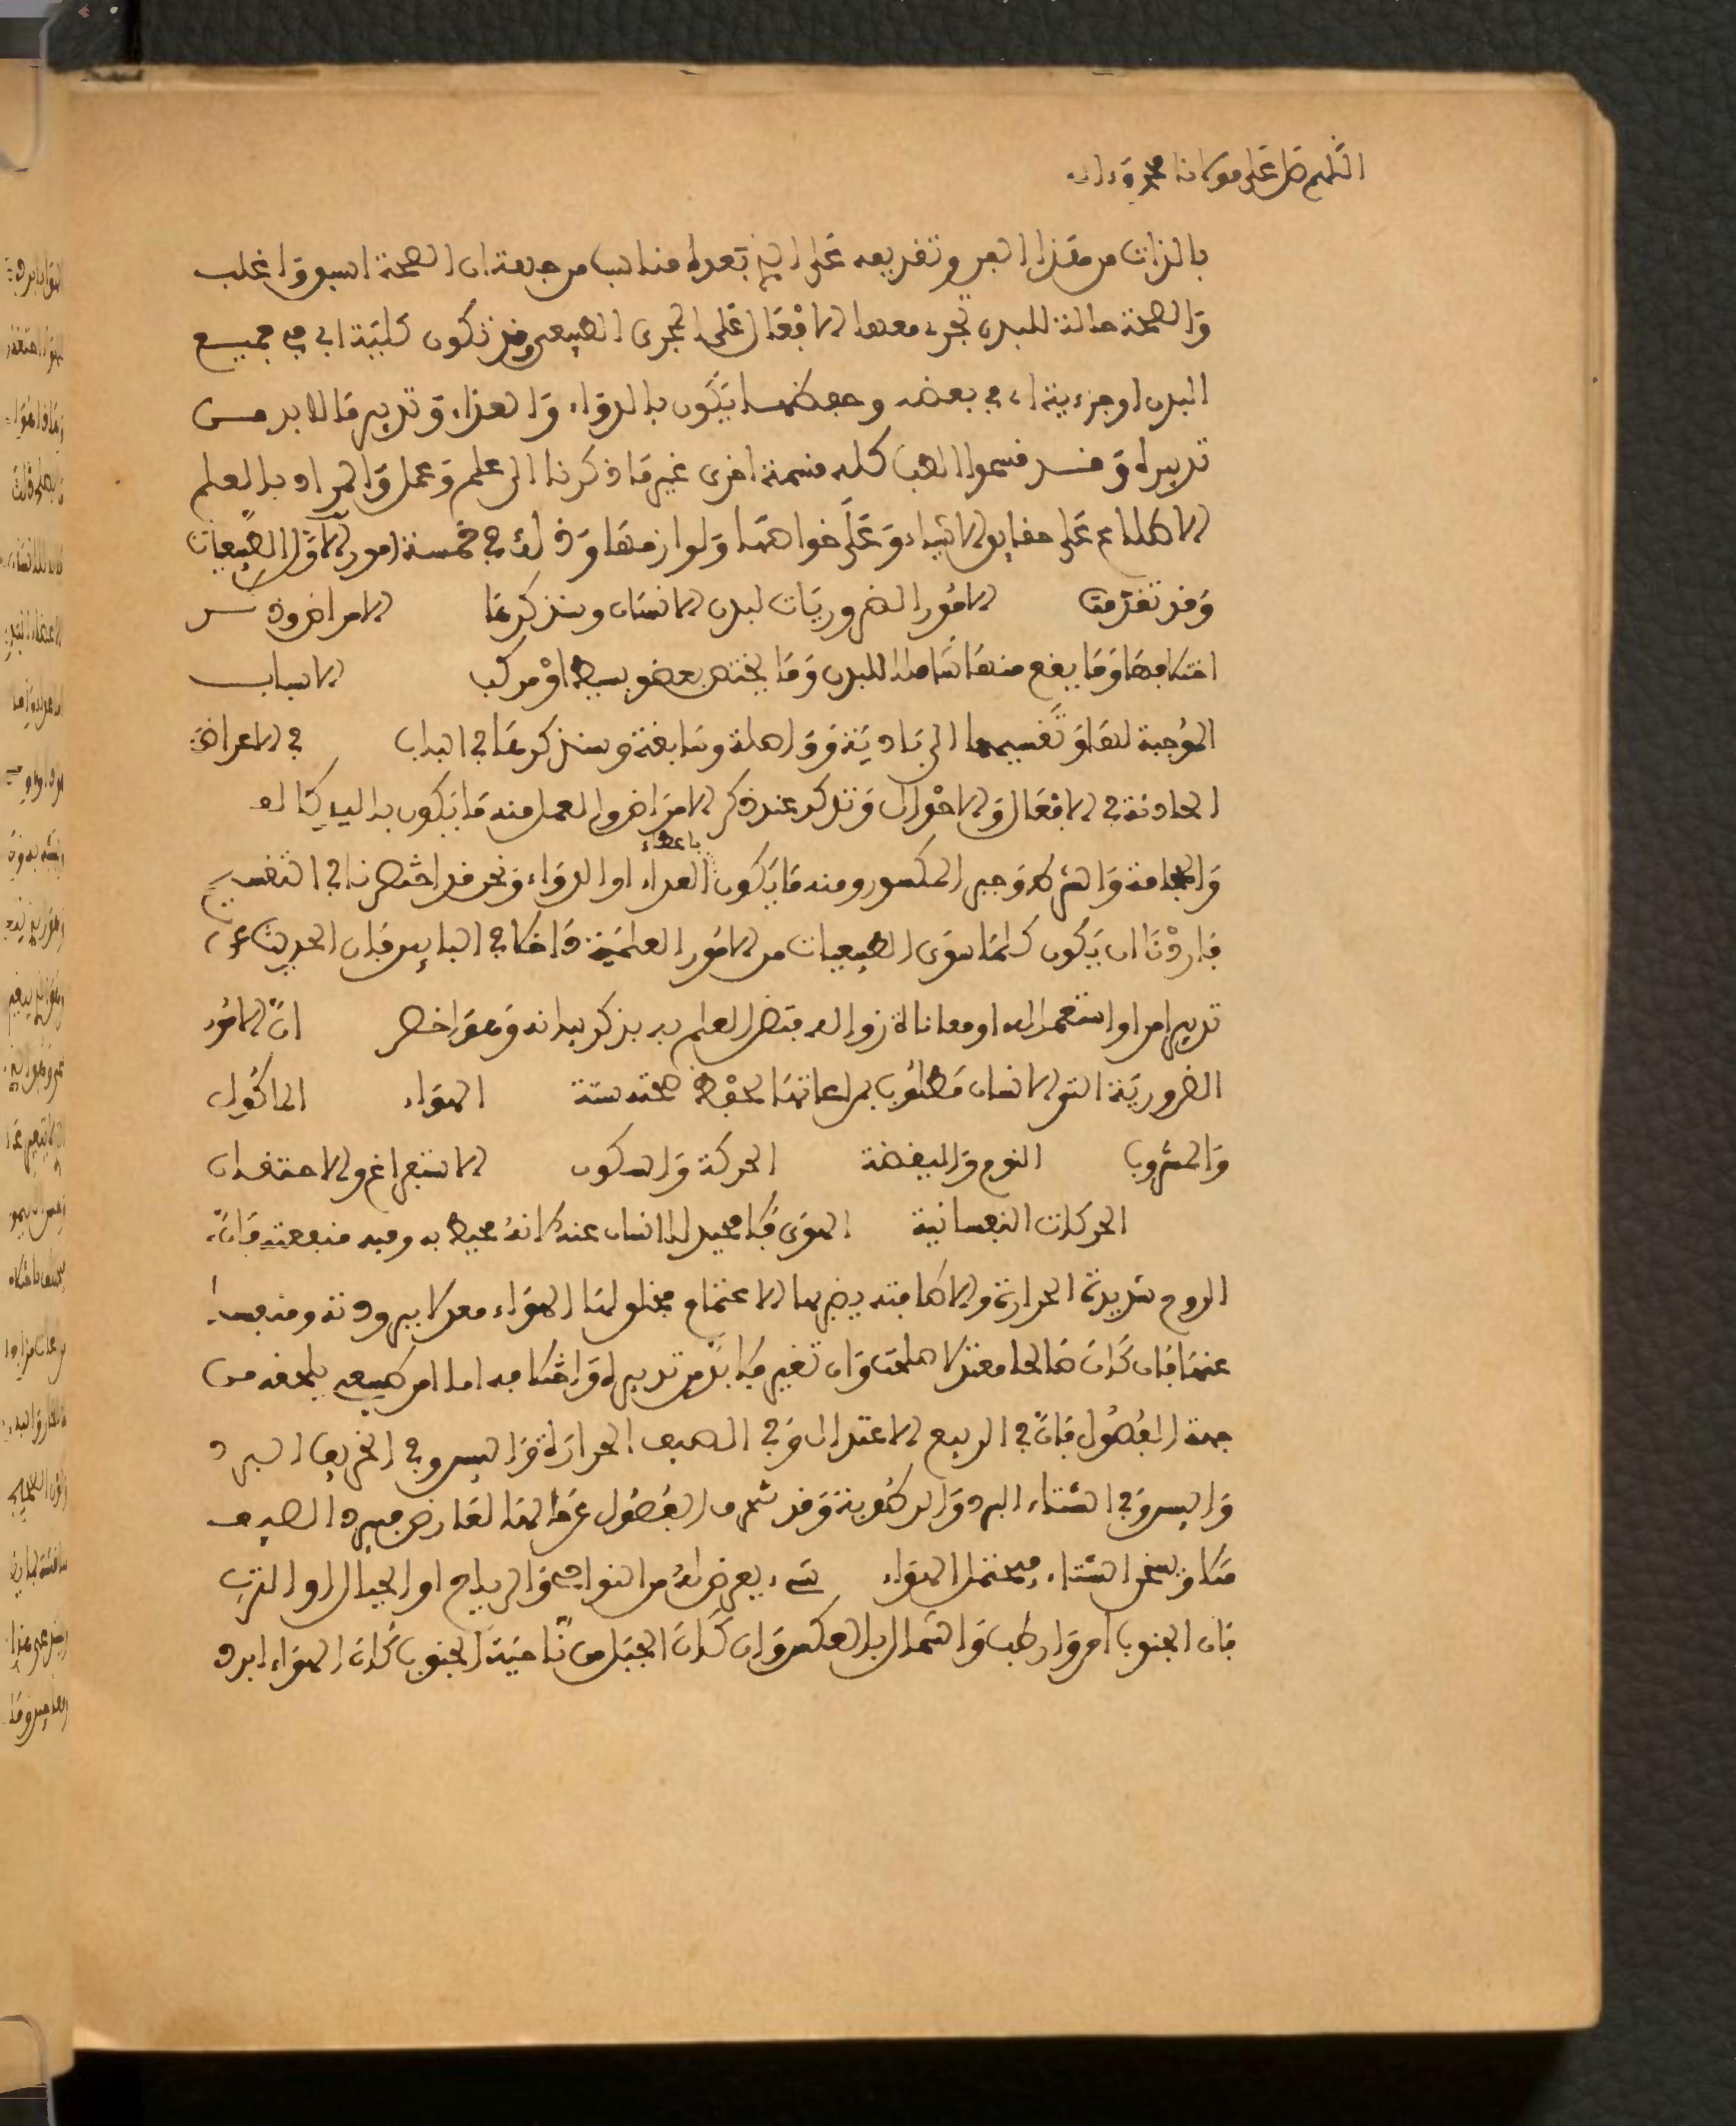 اللهم صل على مولانا محمد وءاله
بالذات من هذا الفن وتفريعه على الذي بعده مناسب من جهة ان الصحة اسبق واغلب
والصحة حالة للبدن تجرى معها الافعال على المجرى الطبيعي وقد تكون كلية اي في جميع
البدن او جزءية اي في بعضه وحفظهما يكون بالدواء والغذاء وتدبير ما لابد من
تدبيره وقد قسموا الطب كله قسمة اخرى غير ما ذكرنا الى علم وعمل والمراد بالعلم
الاطلاع على حقايق الاشياء وعلى خواصها ولوازمها وذلك في خمسة امور الاول الطبيعيات
وقد تقدمت الامور الضروريات لبدن الانسان وسنذكرها الامراض وذكر
اختلافها وما يقع منها شاملا للبدن وما يختص بعضو بسيط او مركب الاسباب
الموجبة لها وتقسيمها الى بادية وواصلة وسابقة وسنذكرها في الباب في الاعراض
الحادثة في الافعال والاحوال وتذكر عند ذكر الامراض والعمل منه ما يكون باليد كالـ
والحجامة والشرط وجبر المكسور ومنه ما يكون باعطاء الغذاء او الدواء ونحن قد اختصرنا في التقسيم
فاردنا ان يكون كلما سوى الطبيعيات من الامور العلمية داخلا في البابين فان الحديث عن
تدبير امر او استعماله او معاناة زواله متضمن العلم به بذكر بيانه وهو اخصر ان الامور
الضرورية التي الانسان مطلوب بمراعاتها لحفظ صحته ستة الهواء الماكول
والمشروب النوم واليقظة الحركة والسكون الاستفراغ والاحتقان
الحركات النفسانية الهوى فلا محيد للانسان عنه لانه محيط به وفيه منفعته فان
الروح شديدة الحرارة والاضافته يضر بها الاغتمام فتخلولها الهواء معدلا ببرودته ومنفسا
عنها فان كان صالحا معتدلا صلحت وان تغير فلا بد من تدبيره واختلافه اما امر طبيعي يلحقه من
جهة الفصول فان في الربيع الاعتدال وفي الصيف الحرارة واليبس وفي الخريف البرد
واليبس وفي الشتاء البرد والرطوبة وقد تنحرف الفصول عن حالها لعارض فيبرد الصيف
مثلا ويسخن الشتاء فيختل الهواء شيء يعرض له من النواحي والرياح او الجبال او الترب
فان الجنوب احر وارطب والشمال بالعكس وان كان الجبل من ناحية الجنوب كان الهواء ابرد